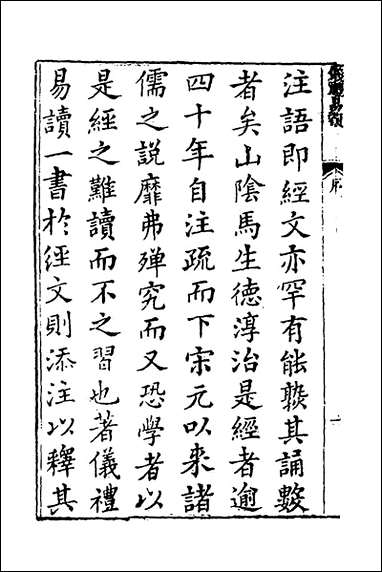 儀禮易讀
序
二
注語即經文亦罕有能驟其誦數
者矣山陰馬生德淳治是經者逾
四十年自注疏而下宋元以來諸
儒之說靡弗殫究而又恐學者以
是經之難讀而不之習也著儀禮
易讀一書於經文則添注以釋其